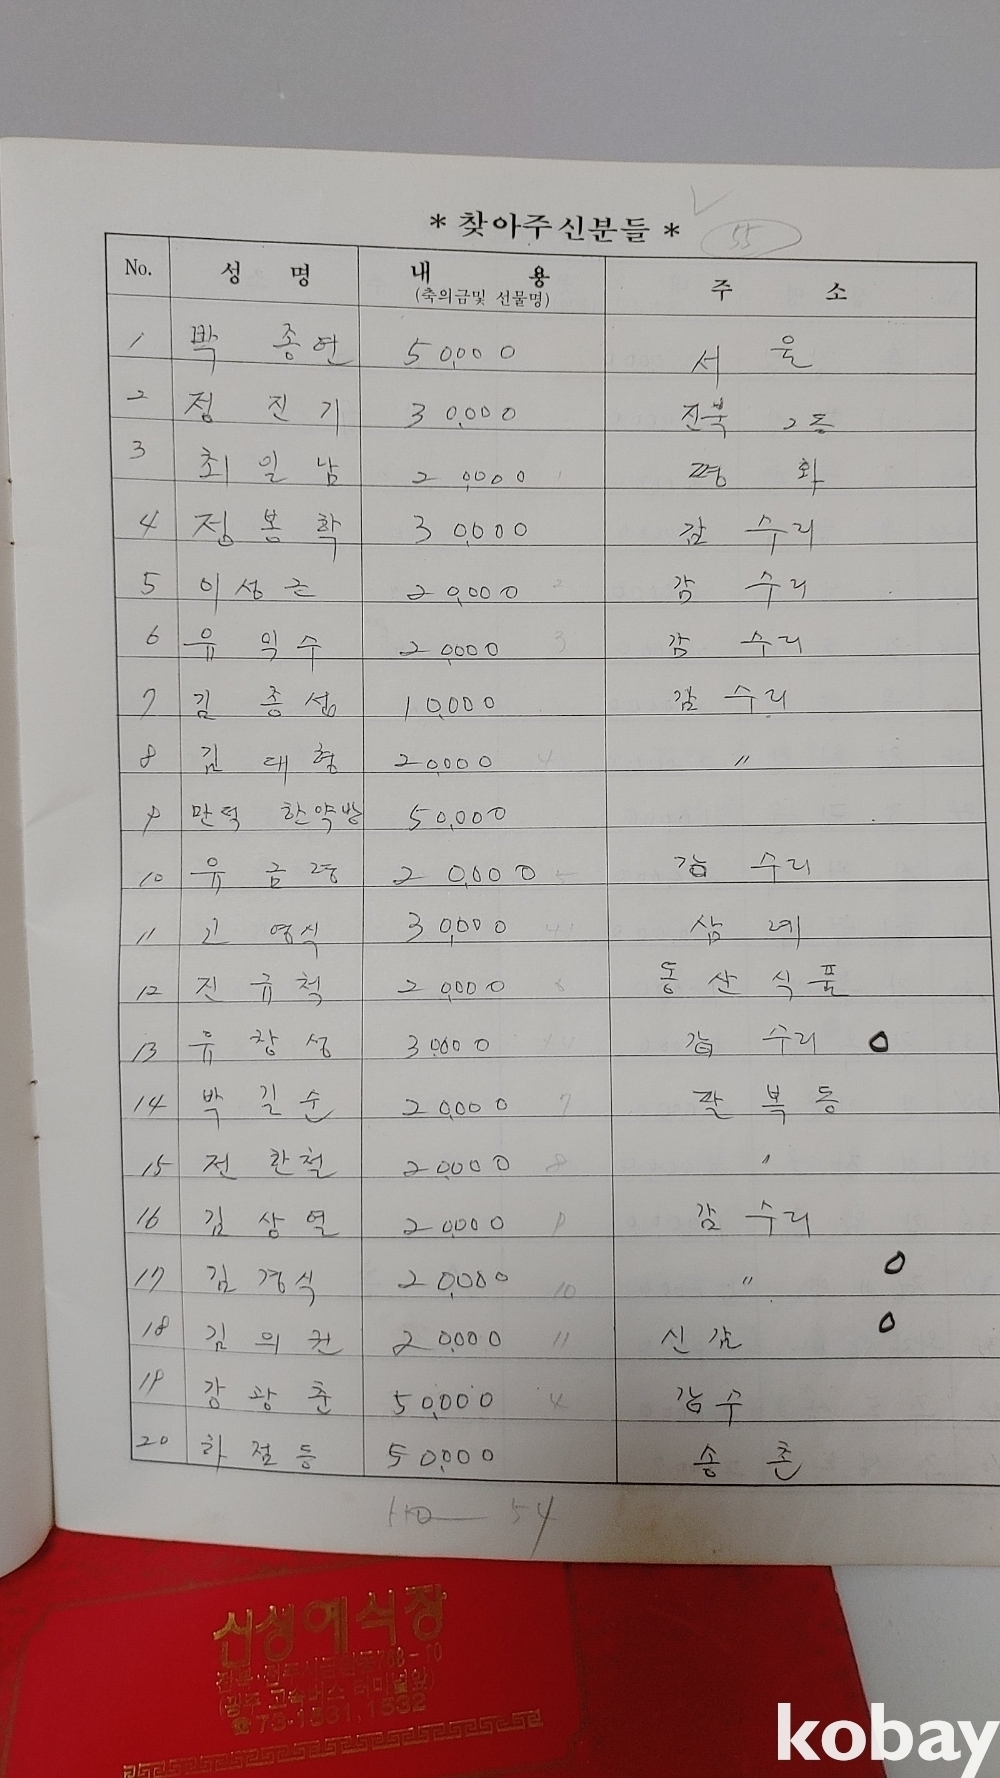 * 찾아주신분들 *
55
No. 성 명 내 용 주 소
(축의금및 선물명)
1 박 종연 50,000 서 울
2 정 진 기 30,000 진북 2동
3 최 일 남 20,000 평 화
4 정 봉 학 30,000 감 수리
5 이 성 근 20,000 2 감 수리
6 유 익 수 20,000 3 감 수리
7 김 종 섭 10,000 감 수리
8 김 대 형 20,000 4 〃
9 만덕 한약방 50,000
10 유 금 20,000 5 감 수리
11 고 영식 30,000 삼 례
12 진 규 척 20,000 6 동 산 식 품
13 유 창 성 30,000 감 수리 O
14 박 길 순 20,000 7 팔 복 동
15 전 환 철 20,000 8 〃
16 김 상 열 20,000 9 감 수리
17 김 경 식 20,000 10 〃 O
18 김 의 권 20,000 11 신 감 O
19 강 광 춘 50,000 4 감 수
20 하 점 등 50,000 송 촌
54
신성예식장
(광주 고속버스 터미널앞)
☎ 73-1531, 1532
kobay